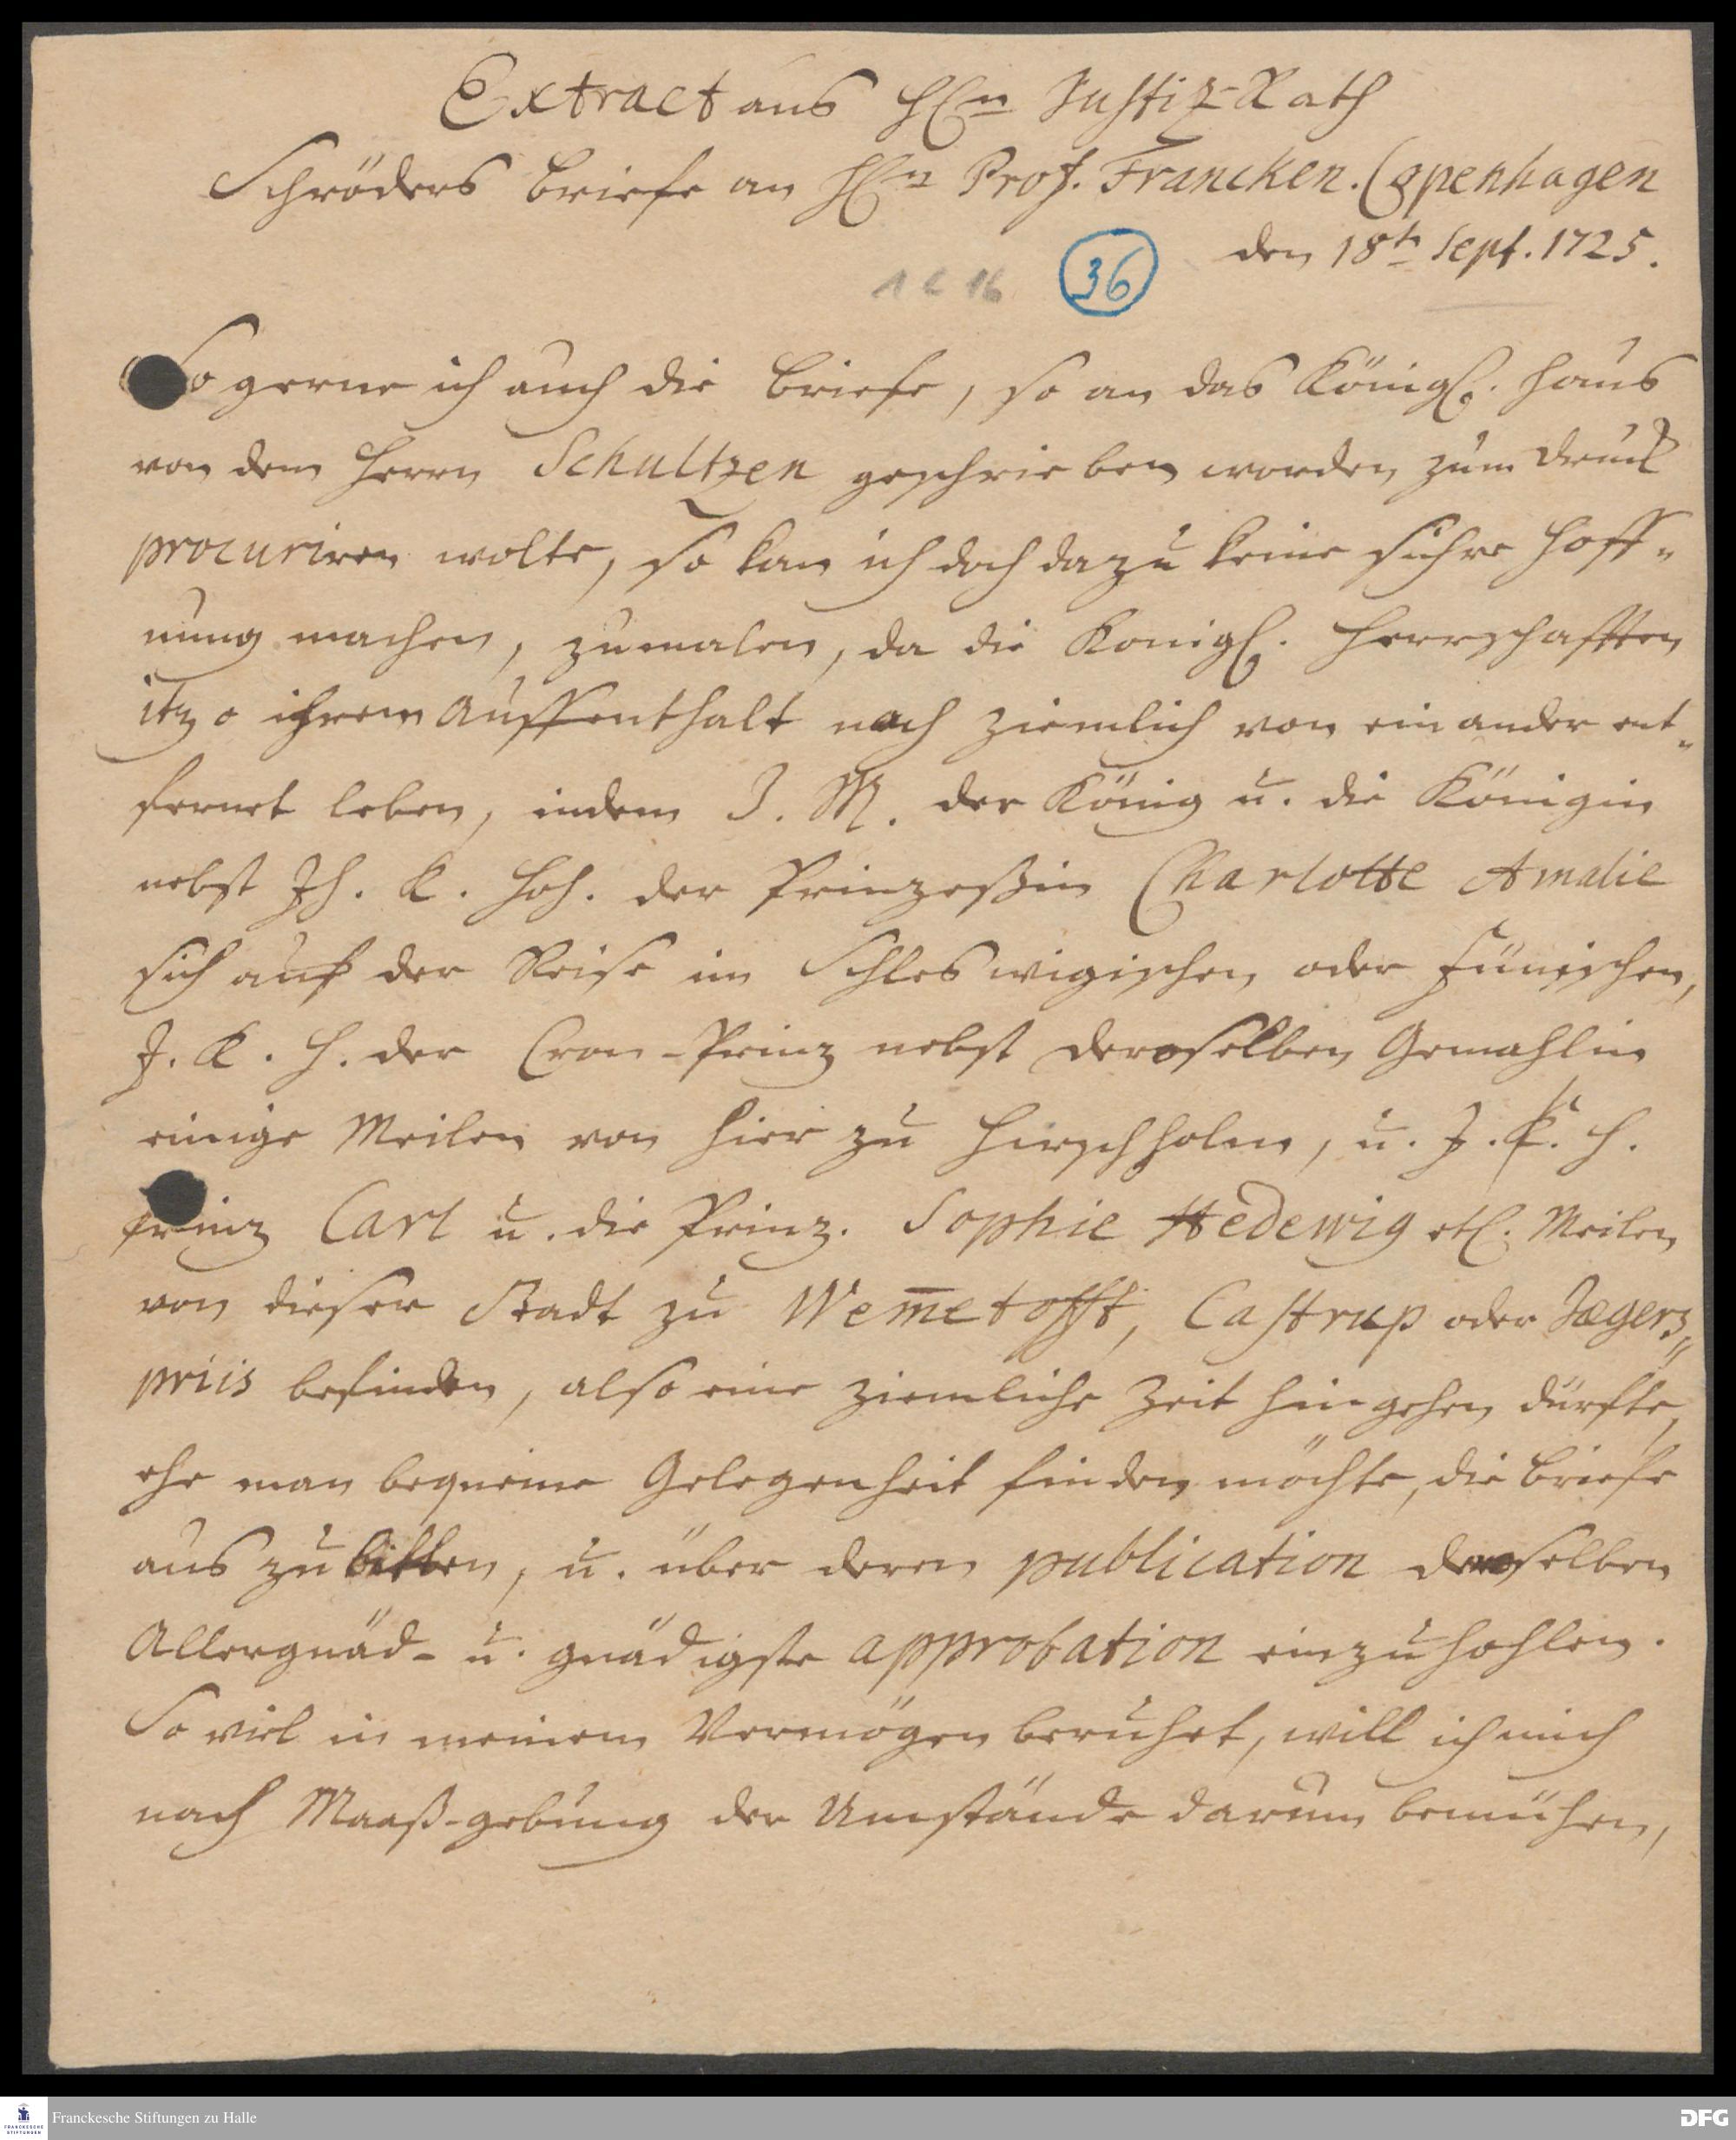 Extract aus HEn Justiz-Rath
Schröders Briefe an HEn Prof. Francken. Copenhagen
den 18tn Sept. 1725.
1 C 16 36
So gerne ich auch die Briefe, so an das Königl. Haus
von dem Herrn Schultzen geschrieben worden, zum Druck
procuriren wolte, so kan ich doch dazu keine sichre Hoff-
nung machen, zumalen, da die Königl. Herrschafften
itzo ihrem Auffenthalt nach ziemlich von einander ent-
fernet leben, indem I. M. der König u. die Königin
nebst Ih. K. Hoh. der Prinzeßin Charlotte Amalie
sich auf der Reise im Schleswigischen oder Fünischen,
I. K. H. der Cron-Prinz nebst deroselben Gemahlin
einige Meilen von hier zu Hirschholm, u. I. K. H.
Prinz Carl u. die Prinz. Sophie Hedewig etl. Meilen
von dieser Stadt zu Wem̄etofft, Castrup oder Jægers-
priis befinden, also eine ziemliche Zeit hingehen dürfte,
ehe man bequeme Gelegenheit finden möchte, die Briefe
auszubitten, u. über deren publication deroselben
Allergnäd- u. gnädigste approbation einzuhohlen.
So viel in meinem Vermögen beruhet, will ich mich
nach Maaß-gebung der Umstände darum bemühen,
Franckesche Stiftungen zu Halle
FRANCKESCHE STIFTUNGEN
DFG